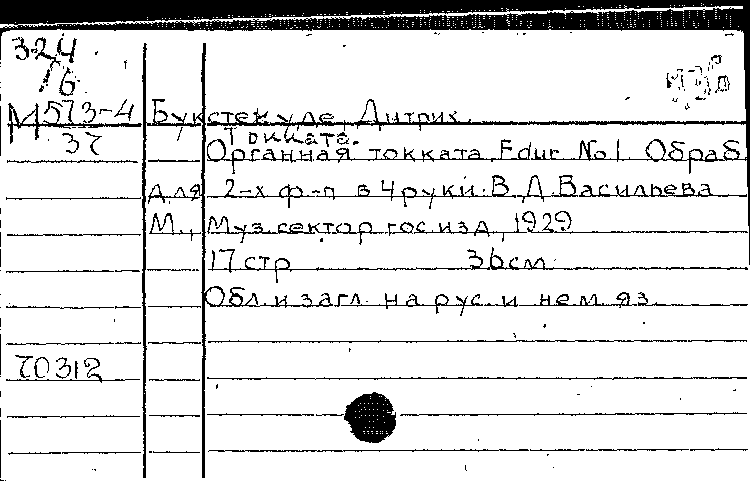 324
16
М573-4 Букстехуде, Дитрих.
37 Токката.
Органная токката, Fdur №1. Обраб.
для 2-х ф-п в 4 руки. В.Д. Васильева
М., Муз. сектор гос. изд., 1929
17 стр. 36 см.
Обл. и загл. на рус. и нем. яз.
70312